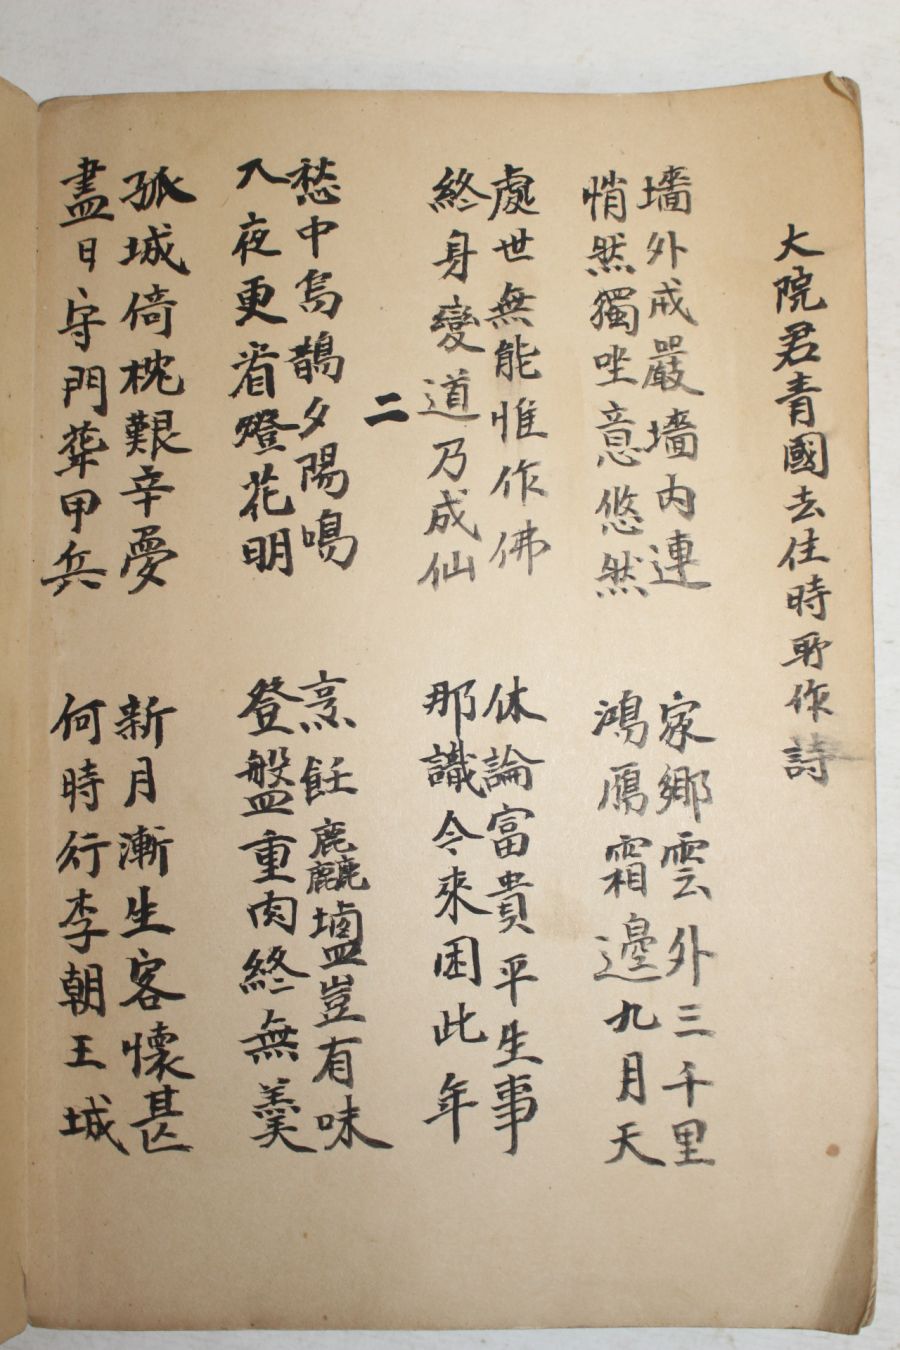 大院君青國去住時所作詩
墻外戒嚴墻內連 家鄉雲外三千里
悄然獨坐意悠然 鴻鴈霜邊九月天
處世無能惟作佛 休論富貴平生事
終身變道乃成仙 那識今來困此年
二
愁中烏鵲夕陽鳴 烹飪麤塩豈有味
入夜更看燈花明 登盤重肉終無羹
孤城倚枕艱辛夢 新月漸生客懷甚
盡日守門葬甲兵 何時行李朝王城